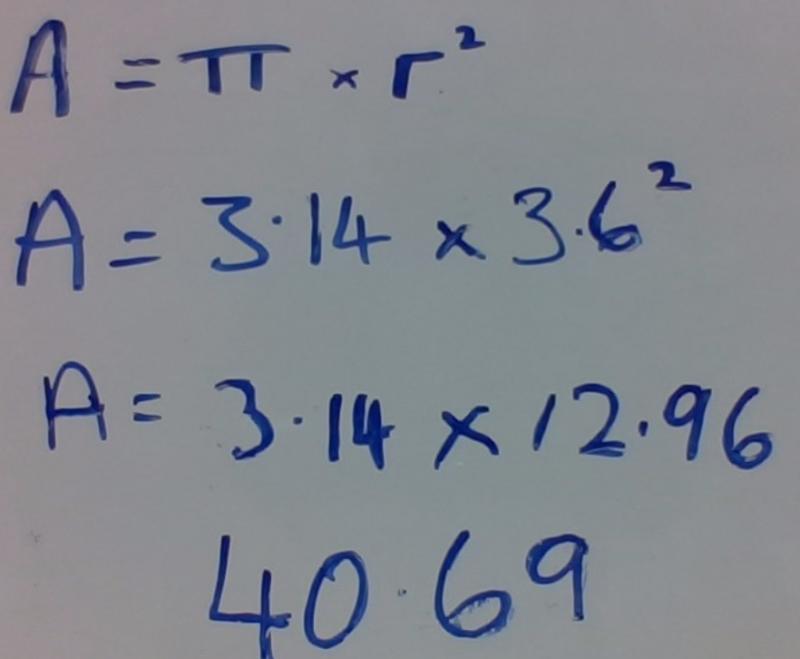 A = π × r²
A = 3.14 × 3.6²
A = 3.14 × 12.96
40.69